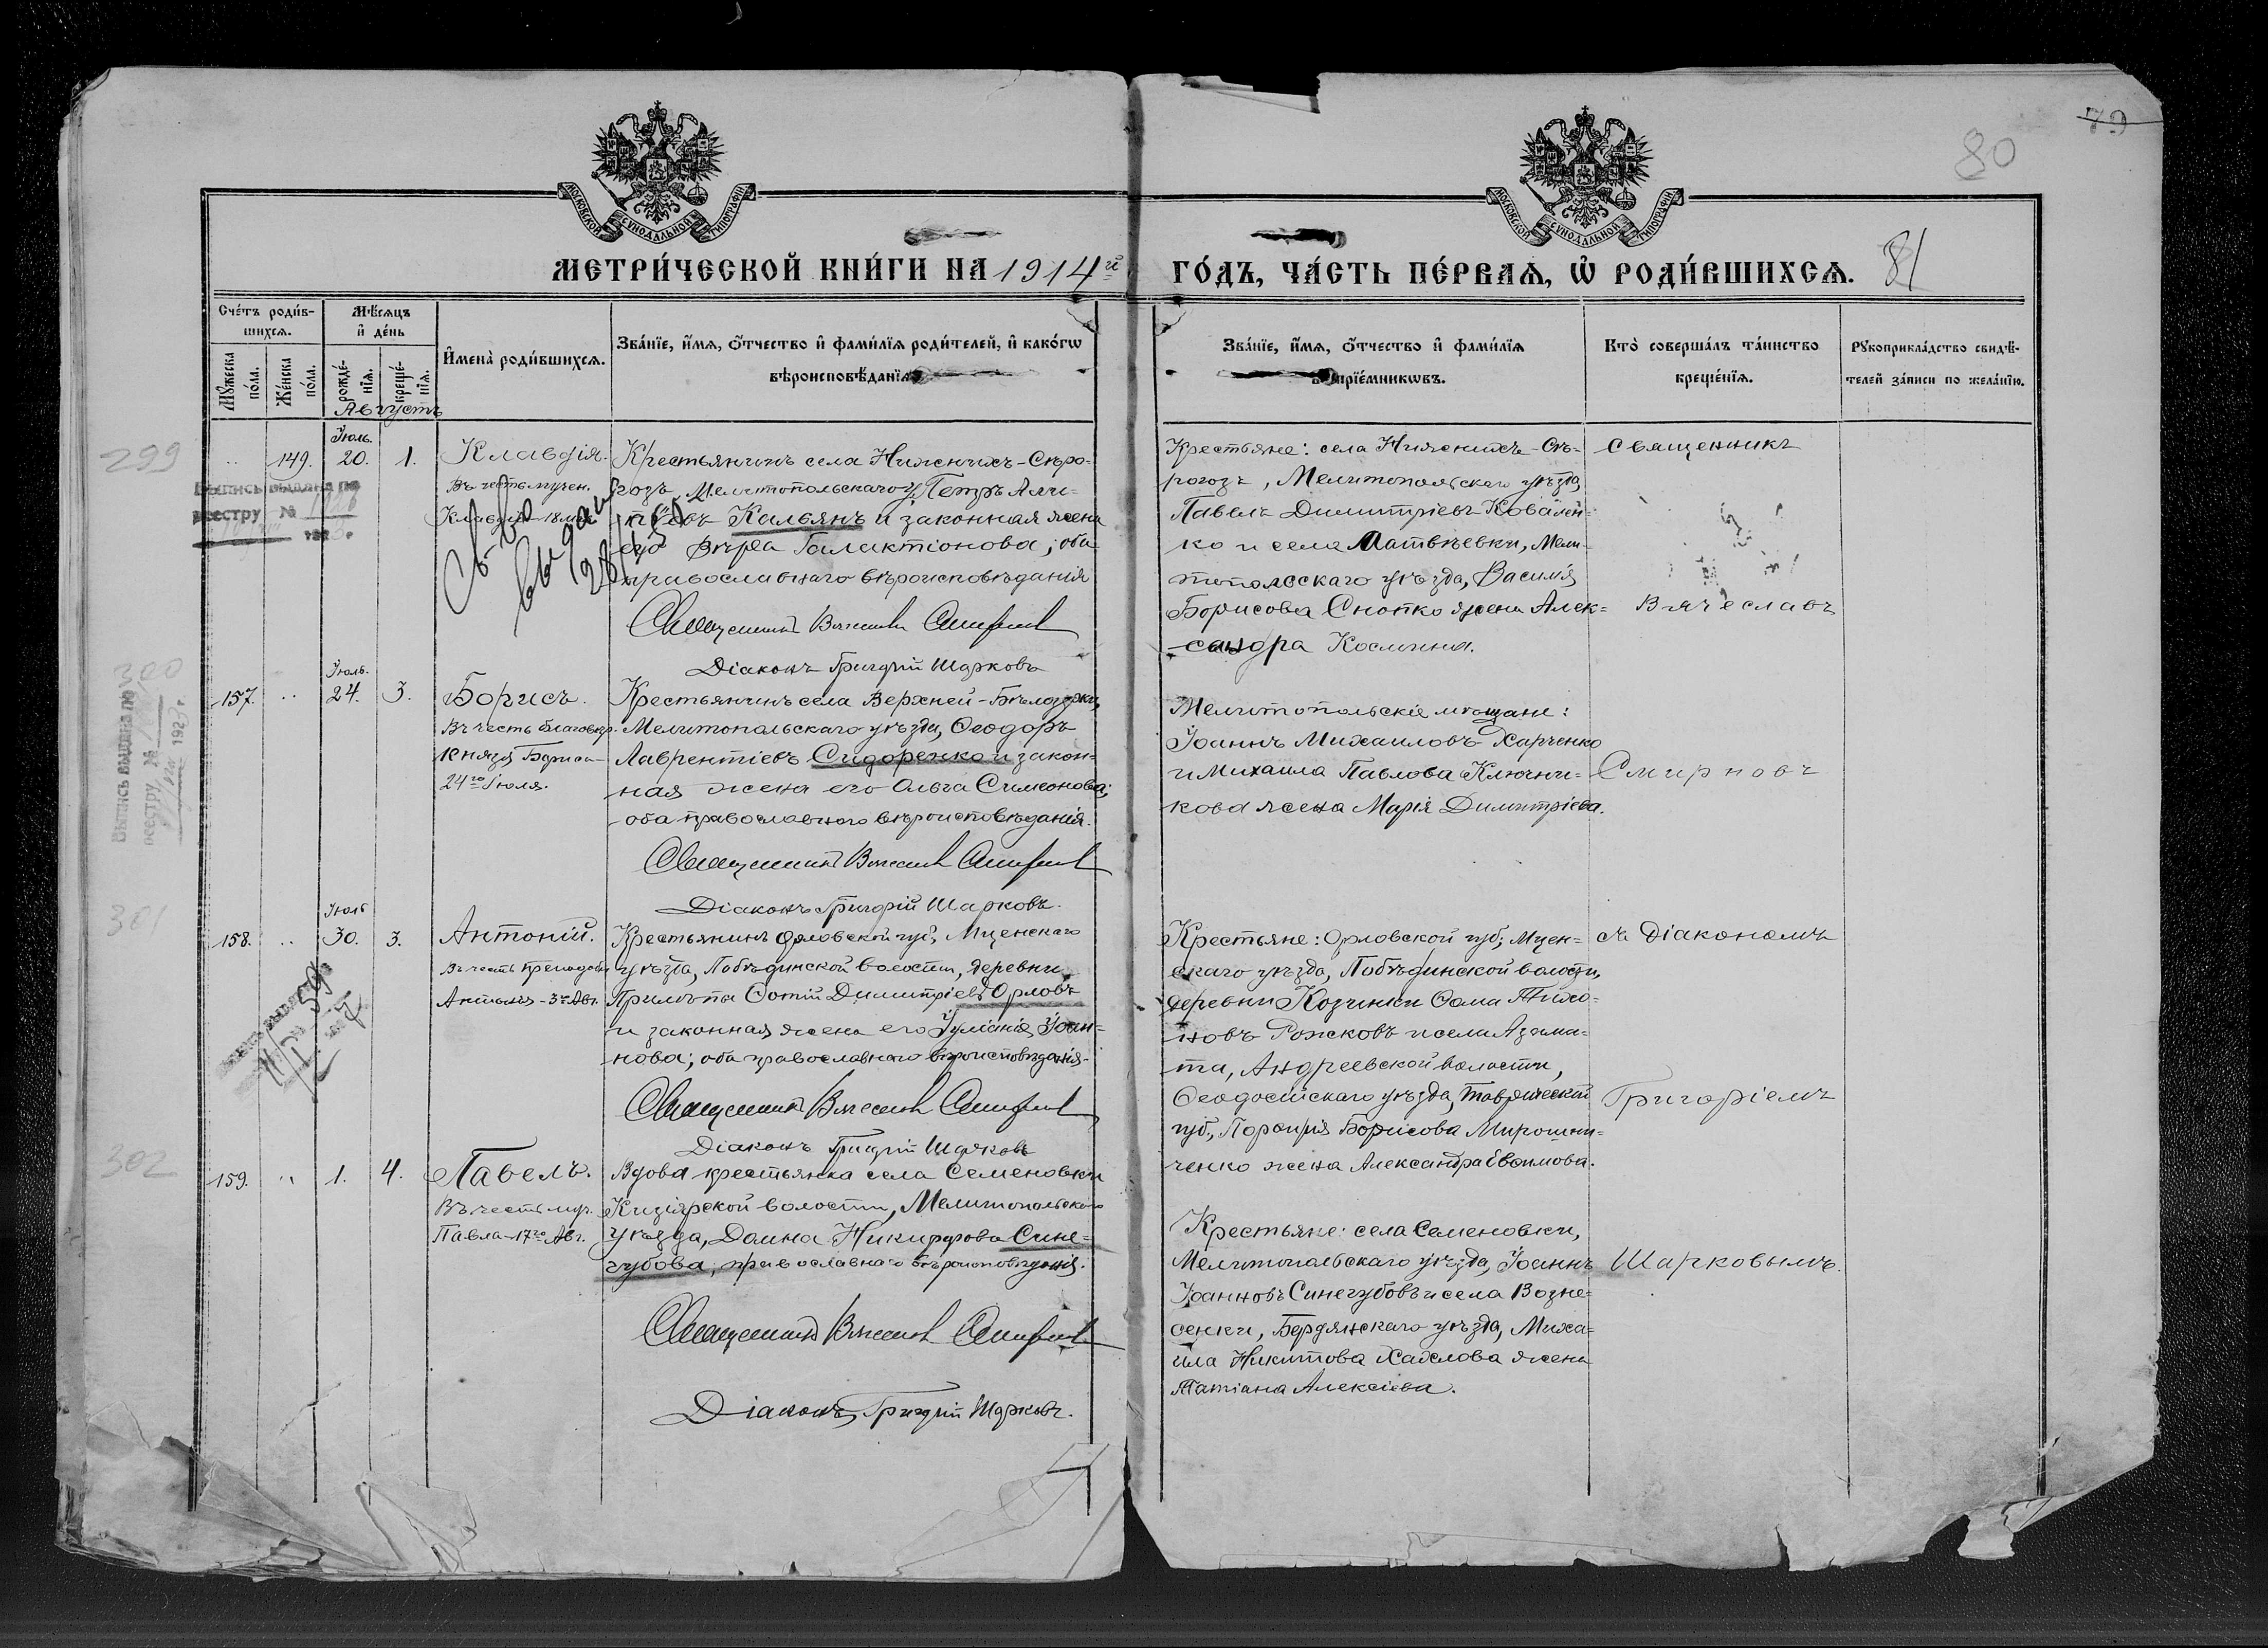 79
80
81
МОСКОВСКОЙ СУНОДАЛЬНОЙ ТИПОГРАФІИ
МОСКОВСКОЙ СУНОДАЛЬНОЙ ТИПОГРАФІИ
МЕТРИ́ЧЕСКОЙ КНИ́ГИ НА 1914й
ГО́ДЪ, ЧА́СТЬ ПЕ́РВАѦ, Ѽ РОДИ́ВШИХСѦ.
Сче́тъ роди́в-
шихсѧ.
Мꙋжеска
по́ла.
Же́нска
по́ла.
Мѣ́сѧцъ
и҆ де́нь
рожде́-
нїѧ.
креще́-
нїѧ.
И҆мена̀ роди́вшихсѧ.
Зва́нїе, и҆́мѧ, ѻ҆́тчество и҆ фами́лїѧ роди́телей, и҆ како́гѡ
вѣроисповѣ́данїѧ
Зва́нїе, и҆́мѧ, ѻ҆́тчество и҆ фами́лїѧ
воспрїе́мникѡвъ.
Кто̀ соверша́лъ та́инство
креще́нїѧ.
Рꙋкоприкла́дство свидѣ́-
телей за́писи по жела́нїю.
Августъ
299
149.
Іюль.
20.
1.
Клавдія.
Въ честь мучен.
Клавдіи - 18
Выпись выдана по
реестру №
Св-во
выдан
Крестьянинъ села Нижнихъ-Сѣро-
гозъ, Мелитопольскаго у, Петръ
Кальянъ и законная жена
его Вѣра Галактіонова; оба
православнаго вѣроисповѣданія
Священникъ Вячеславъ Смирновъ
Діаконъ Григорій Шарковъ
Крестьяне: села Нижнихъ-Сѣ-
рогозъ, Мелитопольскаго уѣзда,
Павелъ Димитріевъ Ковален-
ко и села Матвѣевки, Мели-
топольскаго уѣзда, Василія
Борисова Снопко жена Алек-
сандра Космина.
300
Выпись выдана по
реестру №
192 г.
157.
Іюль.
24.
3.
Борисъ.
Въ честь благовѣр.
Князя Бориса-
24го Іюля.
Крестьянинъ села Верхней-Бѣлозерки,
Мелитопольскаго уѣзда, Ѳеодоръ
Лаврентіевъ Сидоренко и закон-
ная жена его Ольга Симеонова;
оба православнаго вѣроисповѣданія.
Священникъ Вячеславъ Смирновъ
Діаконъ Григорій Шарковъ.
Мелитопольскіе мѣщане:
Іоаннъ Михаиловъ Харченко
и Михаила Павлова Ключни-
кова жена Марія Димитріева.
301
158.
Іюль
30.
3.
Антоній.
Въ честь преподобн.
Антонія - 3го Авг.
Крестьянинъ Орловской губ., Мценскаго
уѣзда, Побѣдинской волости, деревни
Фотій Димитріевъ Орловъ
и законная жена его Іуліанія Іоан-
нова; оба православнаго вѣроисповѣданія.
Священникъ Вячеславъ Смирновъ
Діаконъ Григорій Шарковъ
Крестьяне: Орловской губ., Мцен-
скаго уѣзда, Побѣдинской волости,
деревни Козинки Ѳома Тихо-
новъ Рожковъ и села Азама-
та, Андреевской волости,
Ѳеодосійскаго уѣзда, Таврической
губ., Порфирія Борисова Мирошни-
ченко жена Александра Евѳимова.
302
159.
1.
4.
Павелъ.
Въ честь муч.
Павла - 17го Авг.
Вдова крестьянка села Семеновки
Кизіярской волости, Мелитопольскаго
уѣзда, Домна Никифорова Сине-
губова, православнаго вѣроисповѣданія.
Священникъ Вячеславъ Смирновъ
Діаконъ Григорій Шарковъ.
Крестьяне: села Семеновки,
Мелитопольскаго уѣзда, Іоаннъ
Іоанновъ Синегубовъ и села Возне-
сенки, Бердянскаго уѣзда, Миха-
ила Никитова жена
Татіана Алексіева.
Священникъ
Вячеславъ
Смирновъ
съ Діакономъ
Григоріемъ
Шарковымъ.